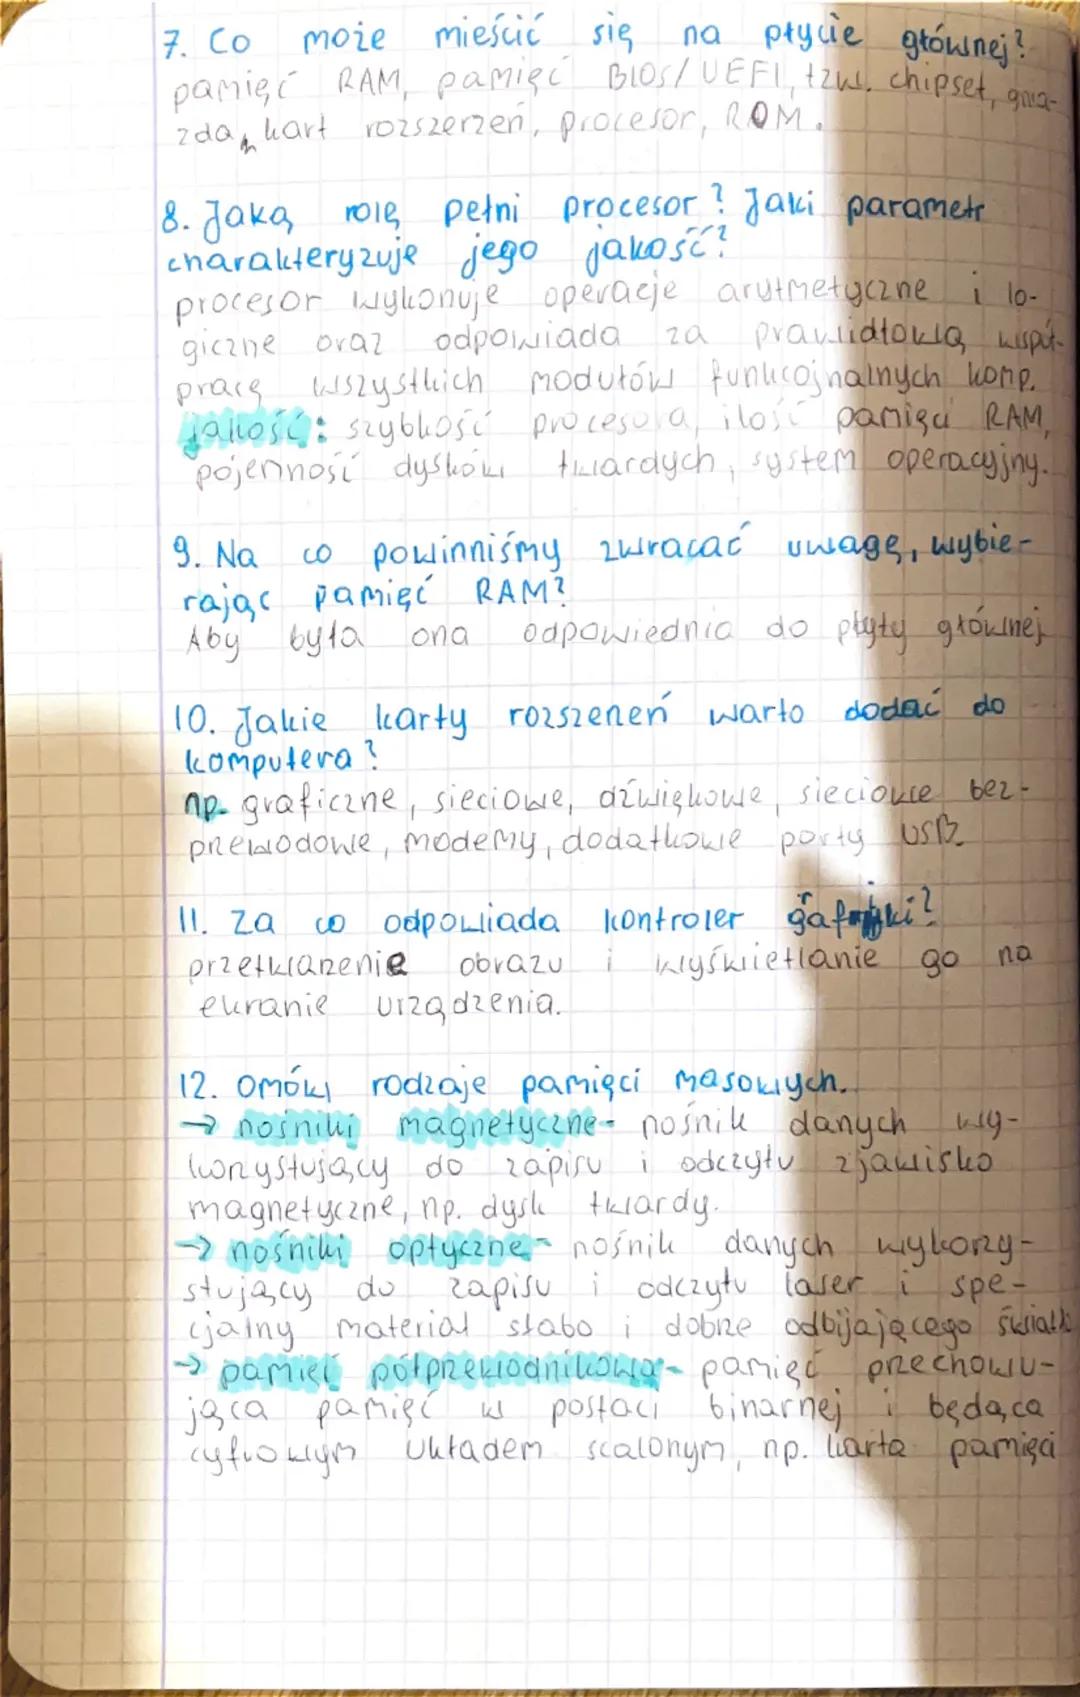 7. Co może mieścić się na płycie głównej?
pamięć RAM, pamięć BIOS/UEFI, tzw. chipset, gnia-
zda kart rozszerzeń, procesor, ROM.
8. Jaką rolę pełni procesor? Jaki parametr
charakteryzuje jego jakość?
procesor wykonuje operacje arytmetyczne i lo-
giczne oraz odpowiada za prawidłową współ-
pracę wszystkich modułów funkcojnalnych komp.
jakość: szybkość procesora, ilość pamięci RAM,
pojemność dysków twardych, system operacyjny.
9. Na co powinniśmy zwracać uwagę, wybie-
rając pamięć RAM?
Aby była ona odpowiednia do płyty głównej
10. Jakie karty rozszerzeń warto dodać do
komputera?
np. graficzne, sieciowe, dźwiękowe, sieciowe bez-
przewodowe, modemy, dodatkowe porty USB.
11. Za co odpowiada kontroler grafiki?
przetwarzenie obrazu i wyświetlanie go na
ekranie urządzenia.
12. Omów rodzaje pamięci masowych.
→ nośniki magnetyczne- nośnik danych wy-
korzystujący do zapisu i odczytu zjawisko
magnetyczne, np. dysk twardy.
→ nośniki optyczne- nośnik danych wykorzy-
stujący do zapisu i odczytu laser i spe-
cjalny materiał słabo i dobrze odbijającego
→ pamięć półprzewodnikowa- pamięć przechowu-
jąca pamięć w postaci binarnej i będąca
cyfrowym układem scalonym, np. karta pamięci